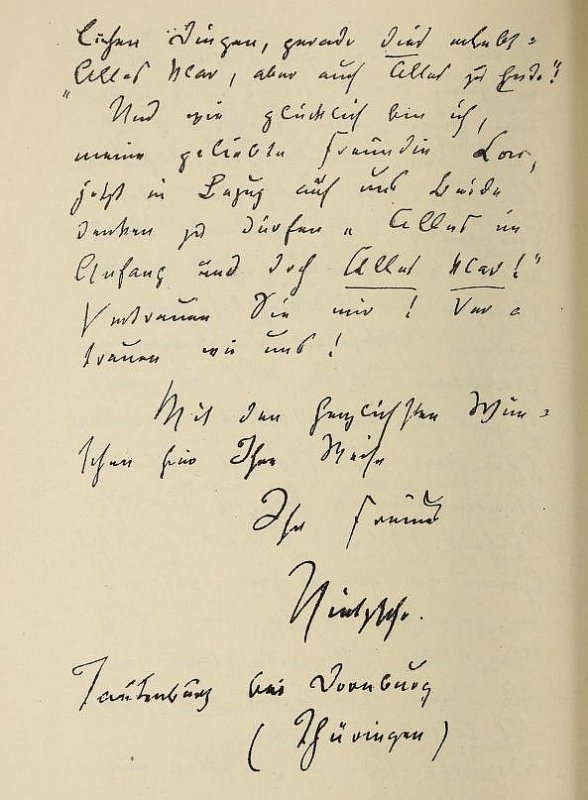 lichen Dingen, gerade dies erlebt:
„Alles klar, aber auch Alles zu Ende“!
Und wie glücklich bin ich,
meine geliebte Freundin Lou,
jetzt in Bezug auf uns Beide
denken zu dürfen „Alles im
Anfang und doch Alles klar!“
Vertrauen Sie mir! Ver=
trauen wir uns!
Mit den herzlichsten Wün=
schen für Ihre Reise
Ihr Freund
Nietzsche.
Tautenburg bei Dornburg
(Thüringen)